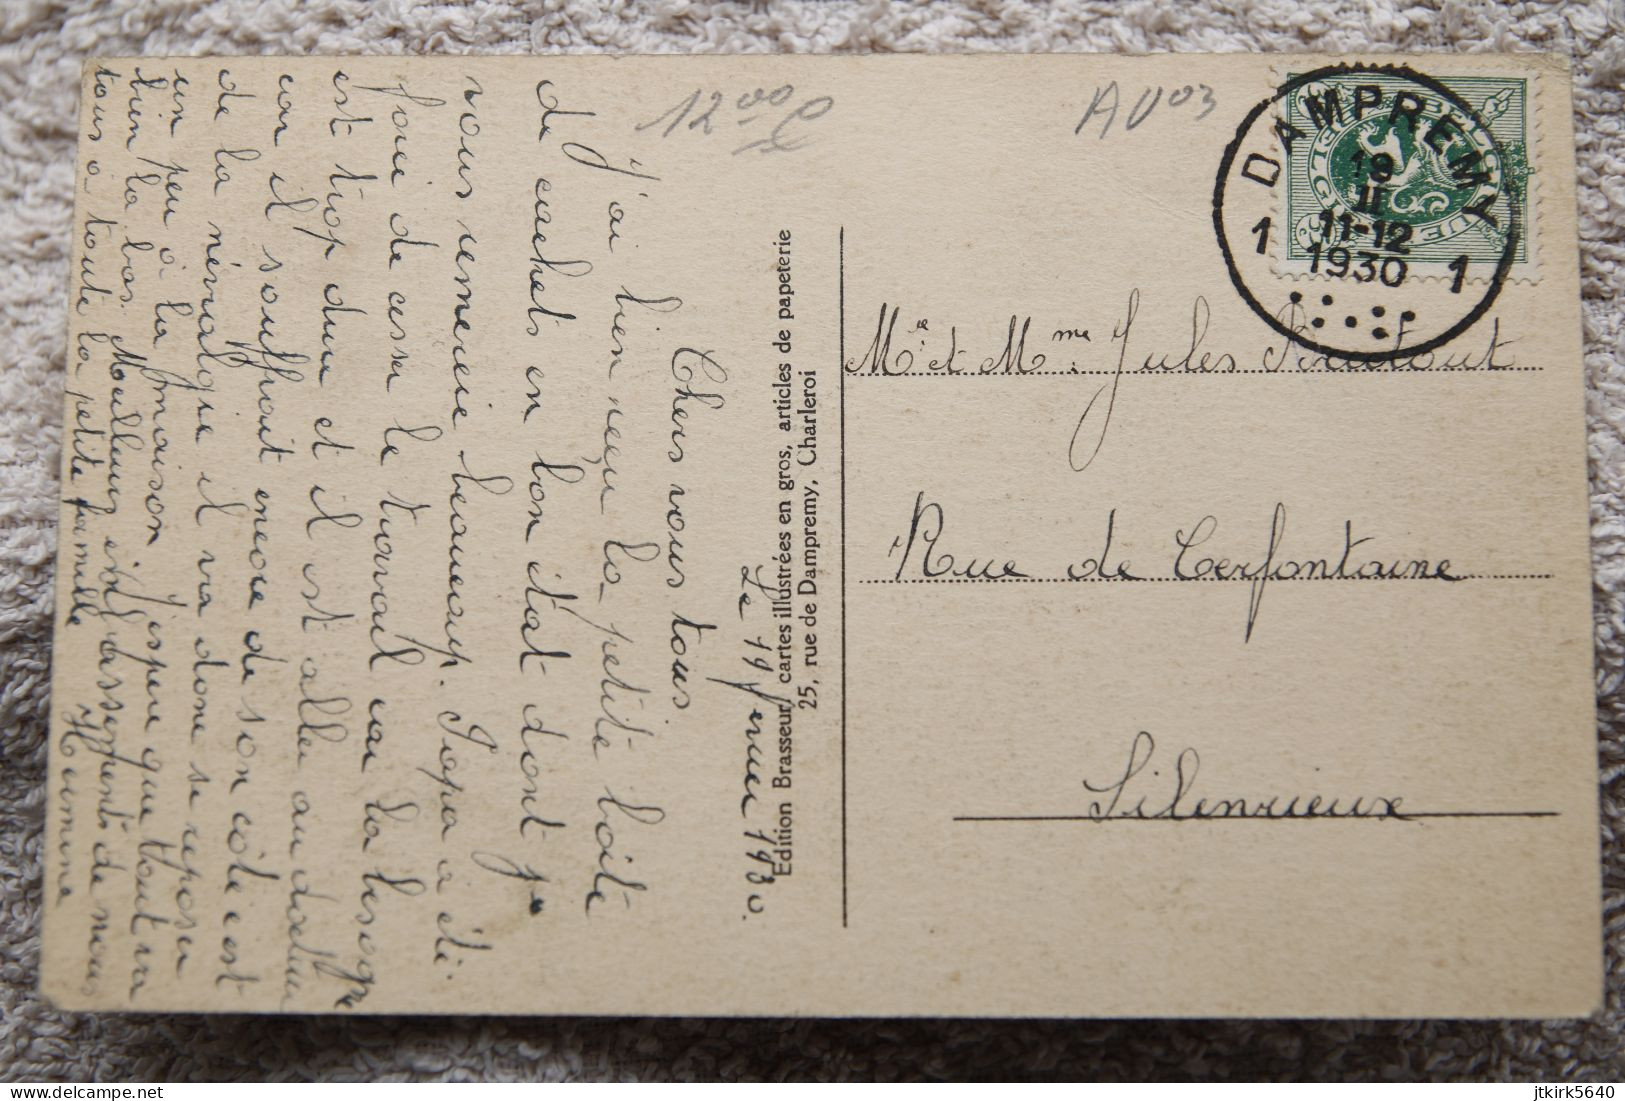 Le 19 février 1930.
Chers vous tous
J'ai bien reçu la petite boîte
de cachets en bon état dont je
vous remercie beaucoup. Papa a été
forcé de cesser le travail car la besogne
est trop dure et il est allé au docteur
car il souffrait encore de son côté c'est
de la névralgie il va donc se reposer
un peu à la maison j'espère que tout va
bien là bas. Meilleurs de nous
tous à toute la petite famille Hermine
12 00
AV03
DAMPREMY
19
II
11-12
1930
1 1
BELGIQUE
BELGIË
35
Edition Brasseur, cartes illustrées en gros, articles de papeterie
25, rue de Dampremy, Charleroi
Mr. et Mme. Jules
Rue de Cerfontaine
Silenrieux
delcampe.net
jtkirk5640